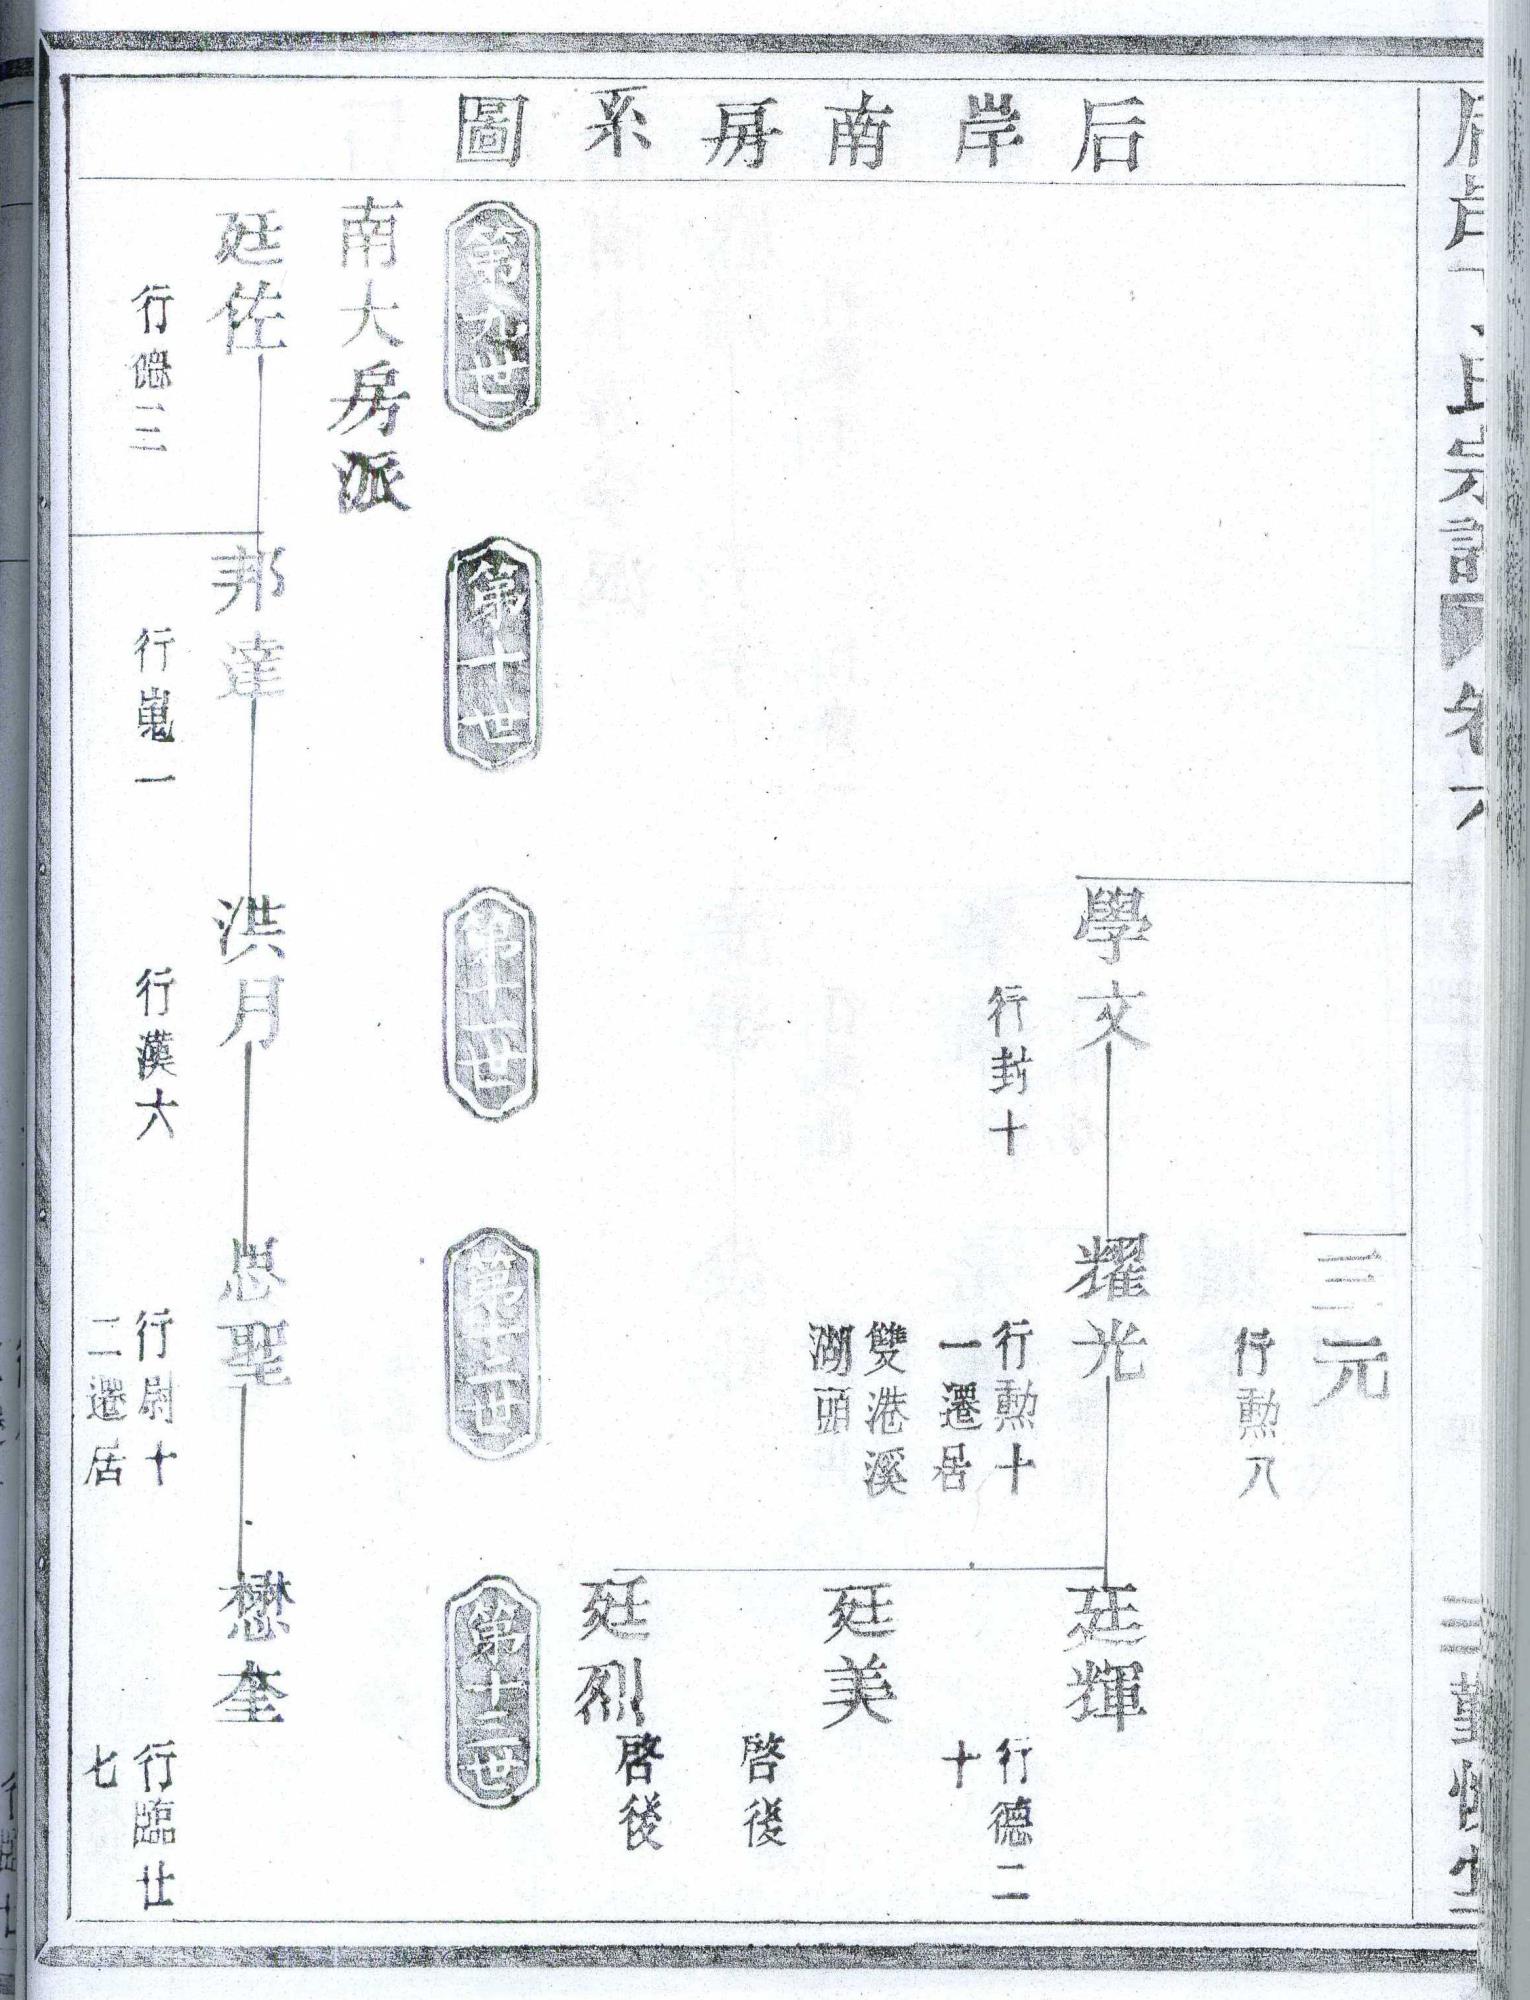 后岸南房系圖
氏宗譜
卷六
三
三元
行勲八
學文
行封十
耀光
行勲十
一遷居
雙港溪
湖頭
廷輝
行德二
十
廷美
啓後
廷烈
啓後
第九世
第十世
第十一世
第十二世
第十三世
南大房派
廷佐
行德三
邦達
行嵬一
洪月
行漢六
思聖
行尉十
二遷居
懋奎
行臨廿
七